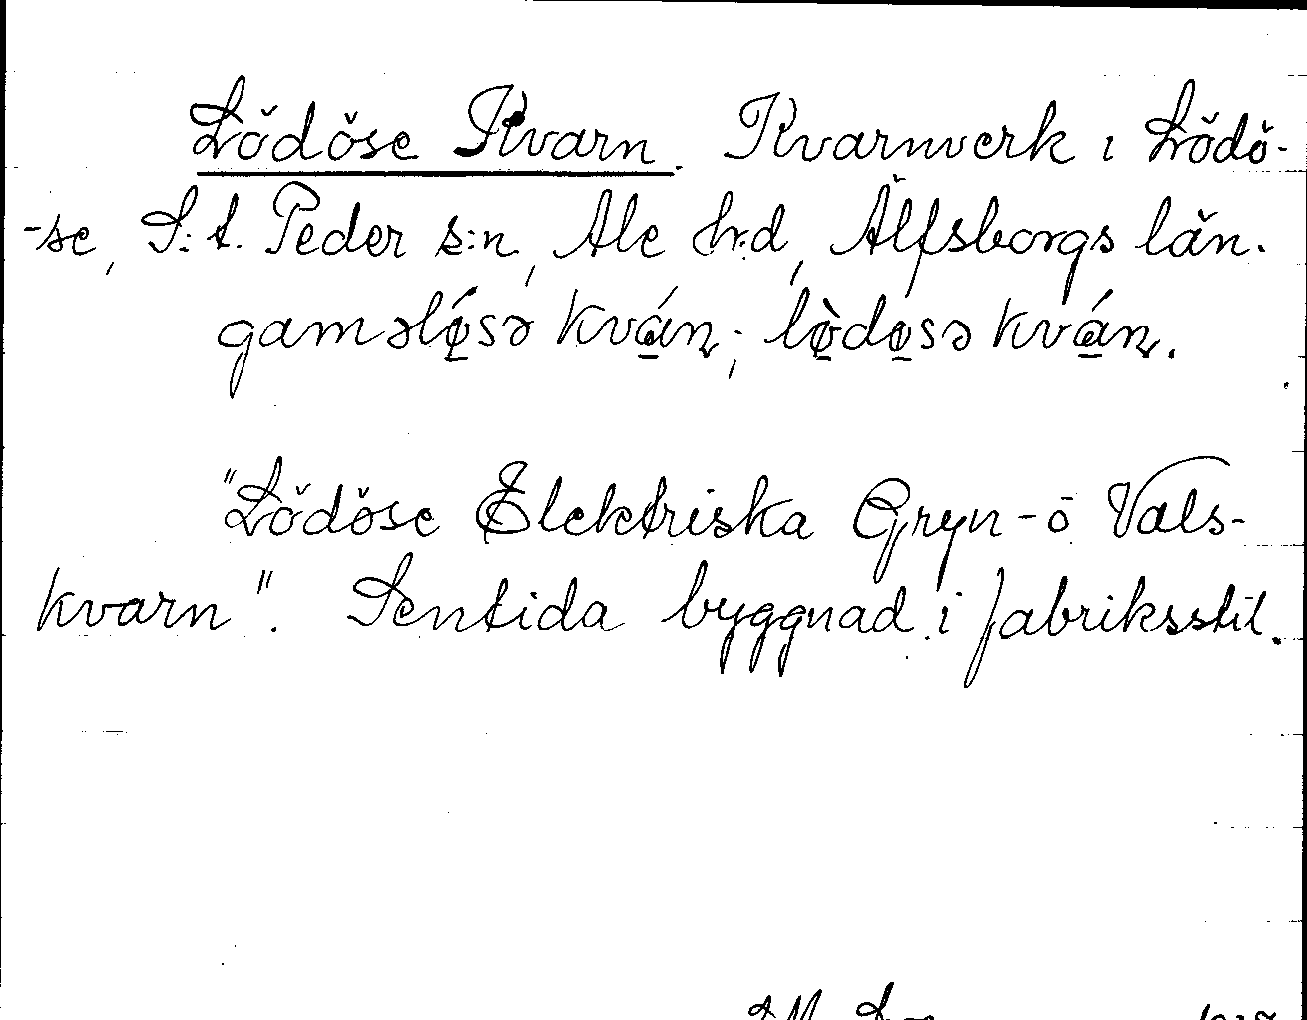 Lödöse Kvarn. Kvarnverk i Lödö-
-se, S:t. Peder s:n, Ale hrd, Älfsborgs län.
gaməlǿ̱sə kvá̱ɳ; lø̱̀dø̱sə kvá̱ɳ.
"Lödöse Elektriska Gryn- o Vals-
kvarn". Sentida byggnad i fabriksstil.